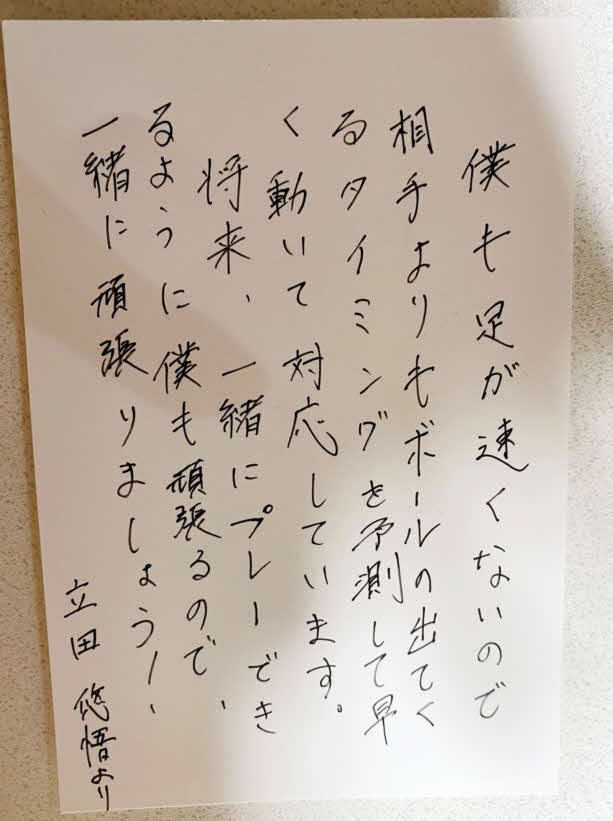 僕も足が速くないので
相手よりもボールの出てく
るタイミングを予測して早
く動いて対応しています。
将来、一緒にプレーでき
るように僕も頑張るので、
一緒に頑張りましょう!
立田 悠悟より